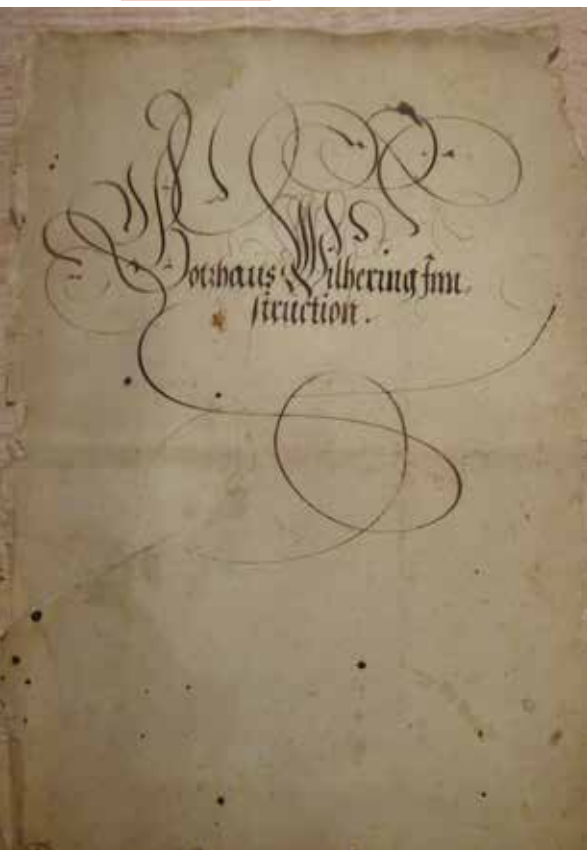 Gotzhaus Wilhering Inn-
struction.